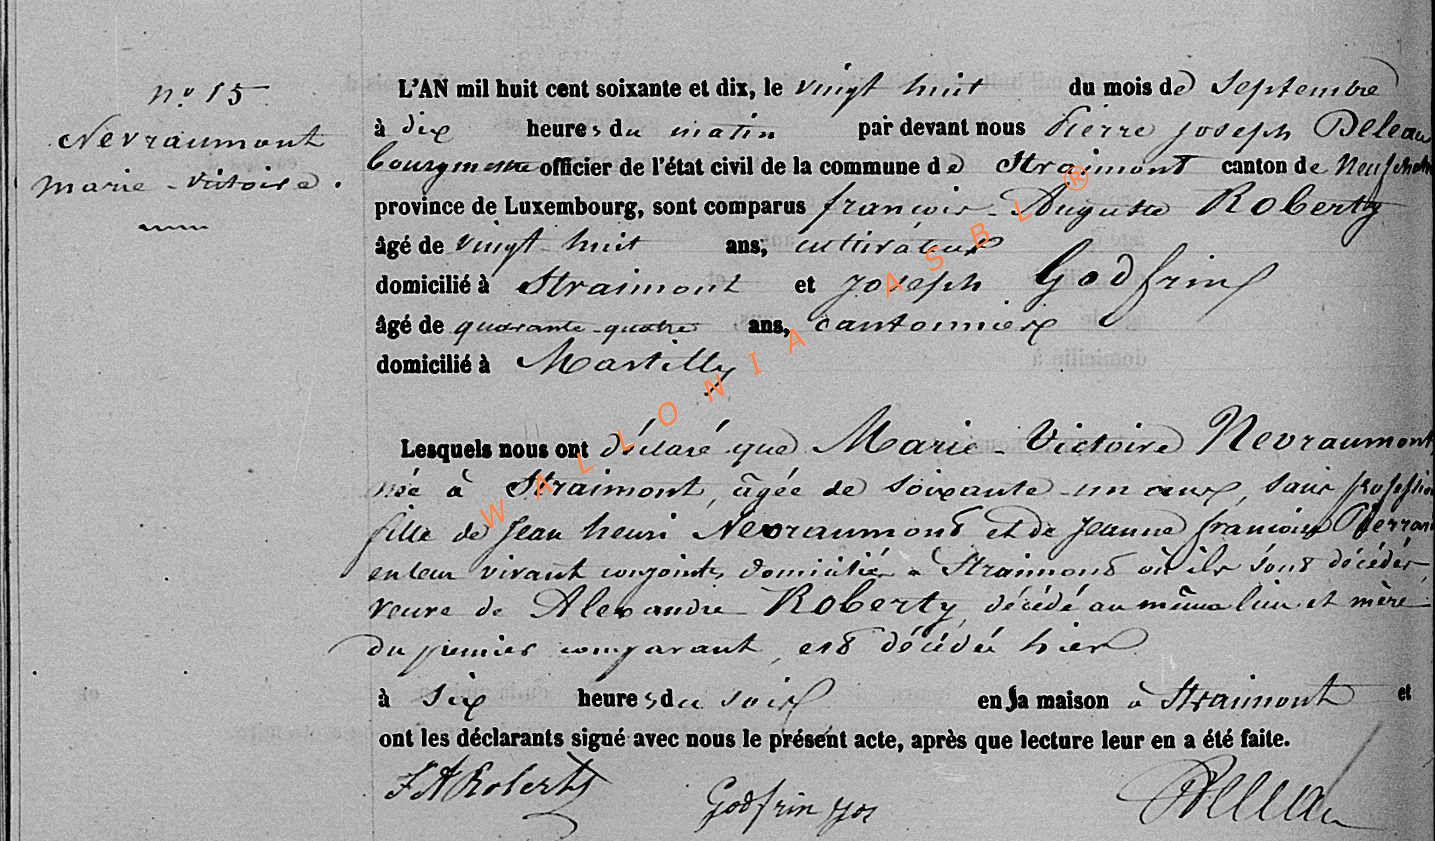 N.o 15
Nevraumont
Marie-Victoire.
L'AN mil huit cent soixante et dix, le vingt huit du mois de Septembre
à dix heures du matin par devant nous Pierre Joseph Deleau
bourgmestre officier de l'état civil de la commune de Straimont canton de
province de Luxembourg, sont comparus françois-Auguste Roberty
âgé de vingt huit ans, cultivateur
domicilié à Straimont et Joseph Godfrin
âgé de quarante-quatre ans, cantonnier
domicilié à Martilly
Lesquels nous ont déclaré que Marie-Victoire Nevraumont
née à Straimont, âgée de soixante-un ans, sans profession
fille de Jean henri Nevraumont et de Jeanne françoise
en leur vivant conjoints, domiciliés à Straimont où ils sont décédés
veuve de Alexandre Roberty, décédé au même lieu et mère
du premier comparant, est décédée hier
à six heures du soir en sa maison à Straimont et
ont les déclarants signé avec nous le présent acte, après que lecture leur en a été faite.
F A Roberty Godfrin Jos Deleau
WALLONIA ASBL ®